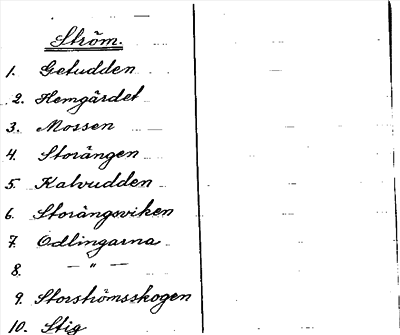 Ström.
1. Getudden
2. Hemgärdet
3. Mossen
4. Storängen
5. Kalvudden
6. Storängsviken
7. Odlingarna
8. — " —
9. Storströmsskogen
10. Stig